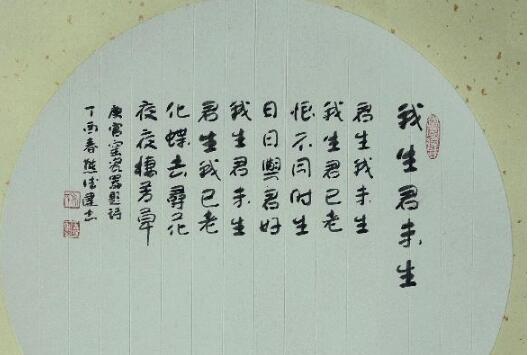 我生君未生
君生我未生
我生君已老
恨不同时生
日日與君好
我生君未生
君生我已老
化蝶去尋花
夜夜棲芳草
題詩
丁酉春